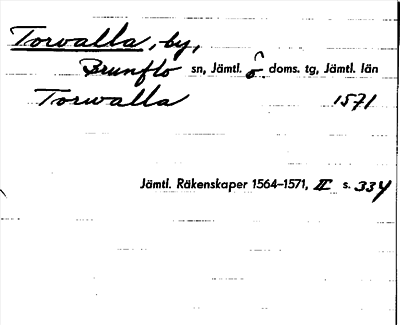 Torvalla, by,
Brunflo sn, Jämtl. ö. doms. tg, Jämtl. län
Torwalla 1571
Jämtl. Räkenskaper 1564–1571, II s. 334